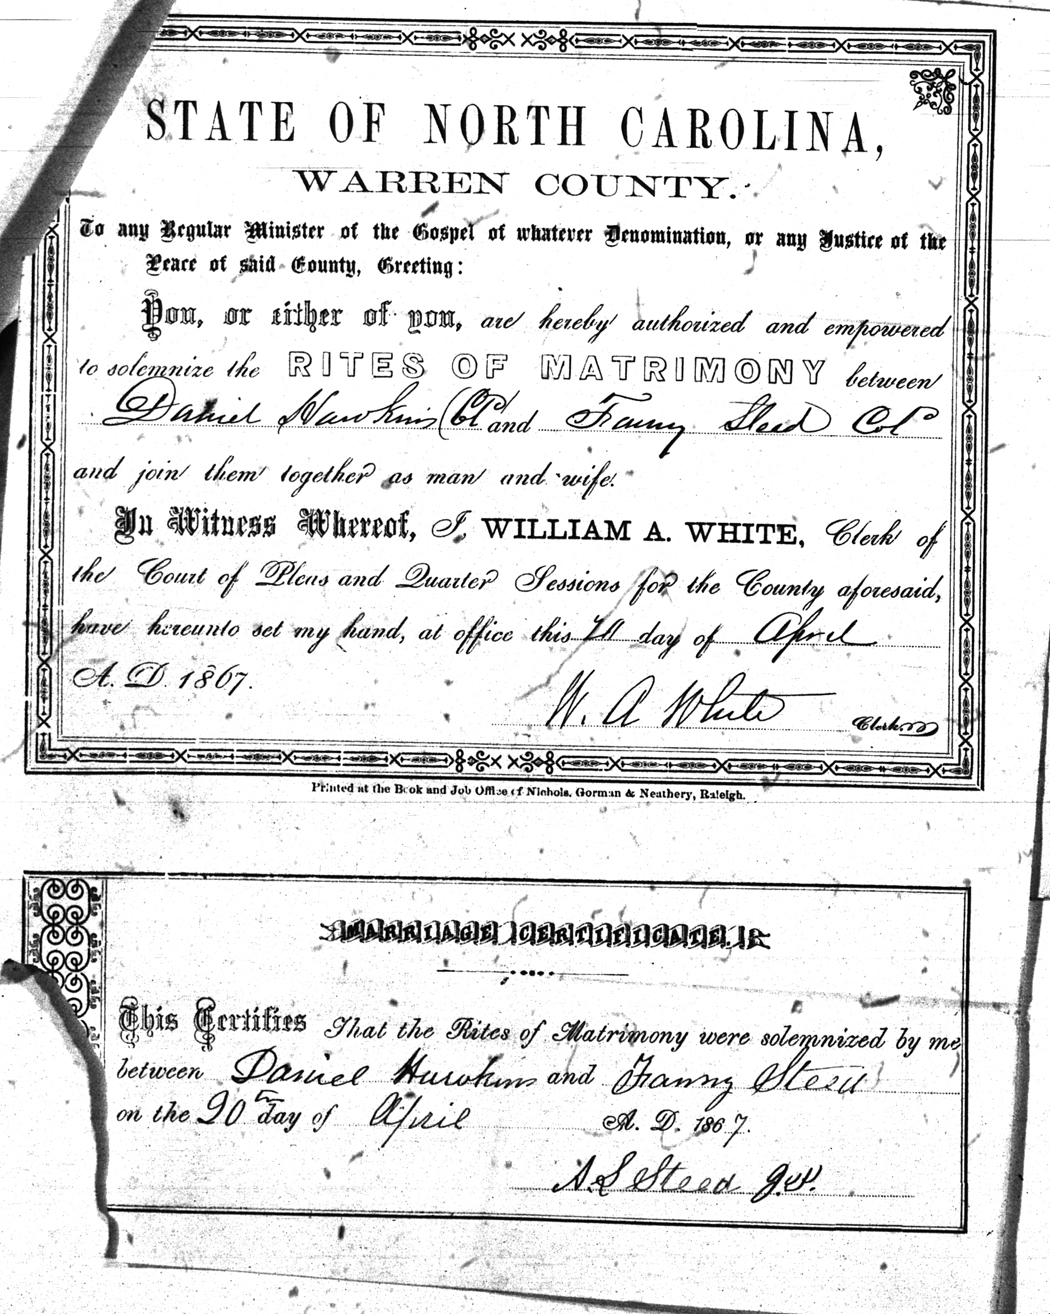 STATE OF NORTH CAROLINA,
WARREN COUNTY.
To any Regular Minister of the Gospel of whatever Denomination, or any Justice of the
Peace of said County, Greeting:
You, or either of you, are hereby authorized and empowered
to solemnize the RITES OF MATRIMONY between
Daniel Hawkins (Cold and Fanny Steed Cold
and join them together as man and wife.
In Witness Whereof, I, WILLIAM A. WHITE, Clerk of
the Court of Pleas and Quarter Sessions for the County aforesaid,
have hereunto set my hand, at office this day of April
A. D. 1867.
W. A White Clerk.
Printed at the Book and Job Office of Nichols, Gorman & Neathery, Raleigh.
MARRIAGE CERTIFICATE.
This Certifies That the Rites of Matrimony were solemnized by me,
between Daniel Hawkins and Fanny Steed
on the 20th day of April A. D. 1867.
A S Steed J.P.